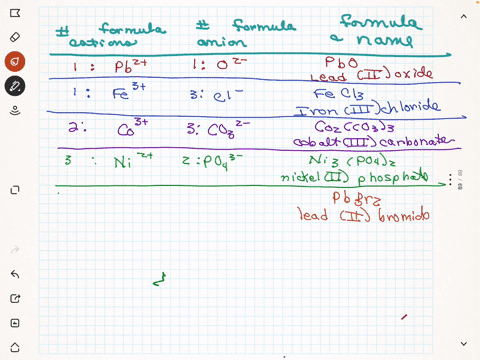 # formula # formula formula
cations anion & name
1: Pb²⁺ 1: O²⁻ PbO
Lead (II) oxide
1: Fe³⁺ 3: Cl⁻ FeCl3
Iron (III) chloride
2: Co³⁺ 3: CO3²⁻ Co2(CO3)3
cobalt (III) carbonate
3: Ni²⁺ 2: PO4³⁻ Ni3(PO4)2
nickel (II) phosphate
PbBr2
lead (II) bromide